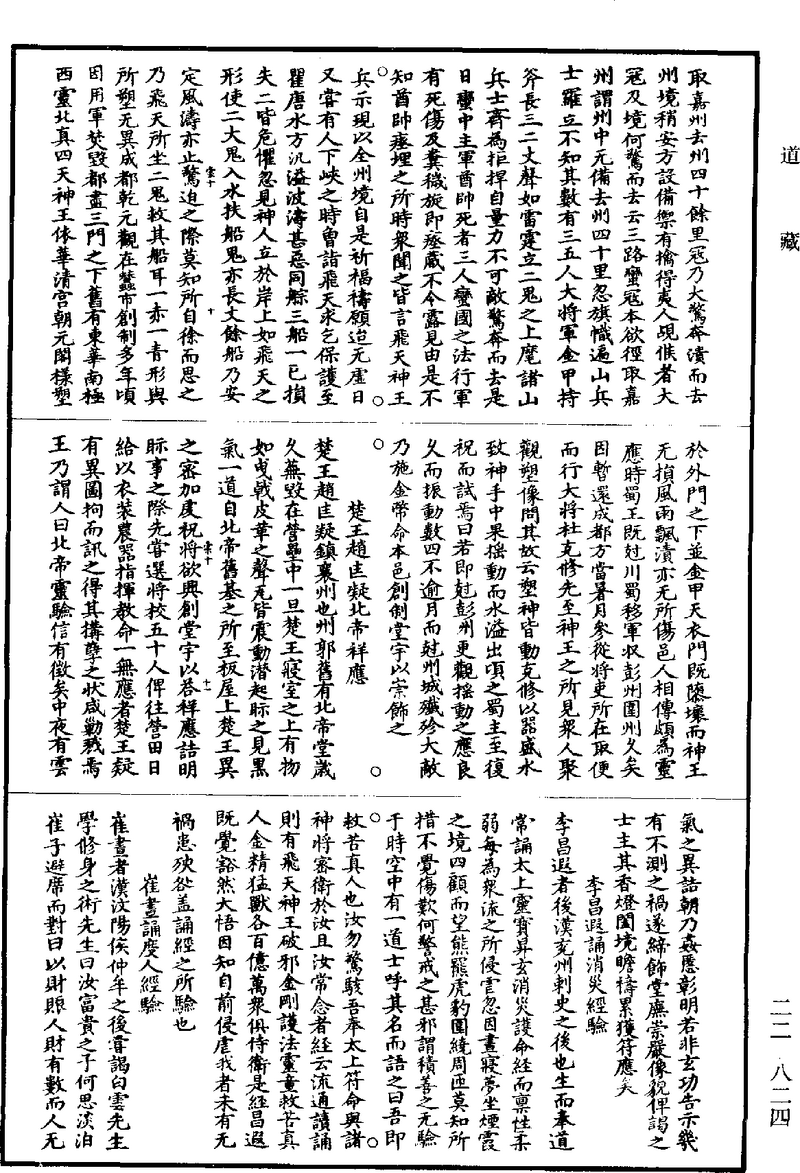 道藏
取嘉州去州四十餘里冦乃大驚奔潰而去
州境稍安方設備禦有擒得夷人覘候者大
冦及境何驚而去云三路蠻冦本欲徑取嘉
州謂州中无備去州四十里忽旗幟遍山兵
士羅立不知其數有三五人大將軍金甲持
斧長三二丈聲如雷霆立二鬼之上麾諸山
兵士齊為拒捍自量力不可敵驚奔而去是
日蠻中主軍酋帥死者三人蠻國之法行軍
有死傷及糞穢旋即瘞藏不令露見由是不
知酋帥瘞埋之所時衆聞之皆言飛天神王
兵示現以全州境自是祈福禱願迨无虛日
又嘗有人下峽之時曾詣飛天求乞保護至
瞿唐水方汎溢波濤甚惡同艅三船一已損
失二皆危懼忽見神人立於岸上如飛天之
形使二大鬼入水扶船鬼亦長丈餘船乃安
定風濤亦止驚迫之際莫知所自徐而思之
乃飛天所坐二鬼救其船耳一赤一青形與
所塑无異成都乾元觀在蠶市創制多年頃
因用軍焚毀都盡三門之下舊有東華南極
西靈北真四天神王依華清宫朝元閣樣塑
於外門之下並金甲天衣門既隳壞而神王
无損風雨飄漬亦无所傷邑人相傳頗爲靈
應時蜀王既尅川蜀移軍収彭州圍州久矣
因暫還成都方當暑月參從將吏所在取便
而行大將杜克修先至神王之所見衆人聚
觀塑像問其故云塑神皆動克修以器盛水
致神手中果搖動而水溢出頃之蜀主至復
祝而試焉曰若即尅彭州更觀搖動之應良
久而振動數四不逾月而尅州城殲殄大敵
乃施金幣命本邑創制堂宇以崇飾之
楚王趙匡凝北帝祥應
楚王趙匡凝鎮襄州也州郭舊有北帝堂歲
久蕪毀在營壘中一旦楚王寢室之上有物
如曳戟皮革之聲瓦皆震動潛起眎之見黑
氣一道自北帝舊基之所至板屋上楚王異
之密加虔祝將欲興創堂宇以荅祥應詰明
眎事之際先嘗選將校五十人俾往營田日
給以衣裝農器指揮教命一無應者楚王疑
有異圖拘而訊之得其搆孽之狀咸勦戮焉
王乃謂人曰北帝靈驗信有徵矣中夜有雲
氣之異詰朝乃姦慝彰明若非玄功告示幾
有不測之禍遂締飾堂廡崇嚴像貌俾謁之
士主其香燈闔境瞻禱累獲符應矣
李昌遐誦消災經驗
李昌遐者後漢兗州刺史之後也生而奉道
常誦太上靈寶昇玄消災護命經而禀性柔
弱每為衆流之所侵霅忽因晝寢夢坐煙霞
之境四顧而望熊羆虎豹圍繞周匝莫知所
措不覺傷歎何警戒之甚邪謂積善之无驗
于時空中有一道士呼其名而語之曰吾即
救苦真人也汝勿驚駭吾奉太上符命與諸
神將密衛於汝且汝常念者經云流通讀誦
則有飛天神王破邪金剛護法靈童救苦真
人金精猛獸各百億萬衆俱侍衛是經昌遐
既覺豁然大悟因知自前侵虐我者未有无
禍患殃咎盖誦經之所驗也
崔晝誦度人經驗
崔晝者漢汶陽侯仲牟之後嘗謁白雲先生
學修身之術先生曰汝富貴之子何思淡泊
崔子避席而對曰以財賑人財有數而人无
二二 八二四